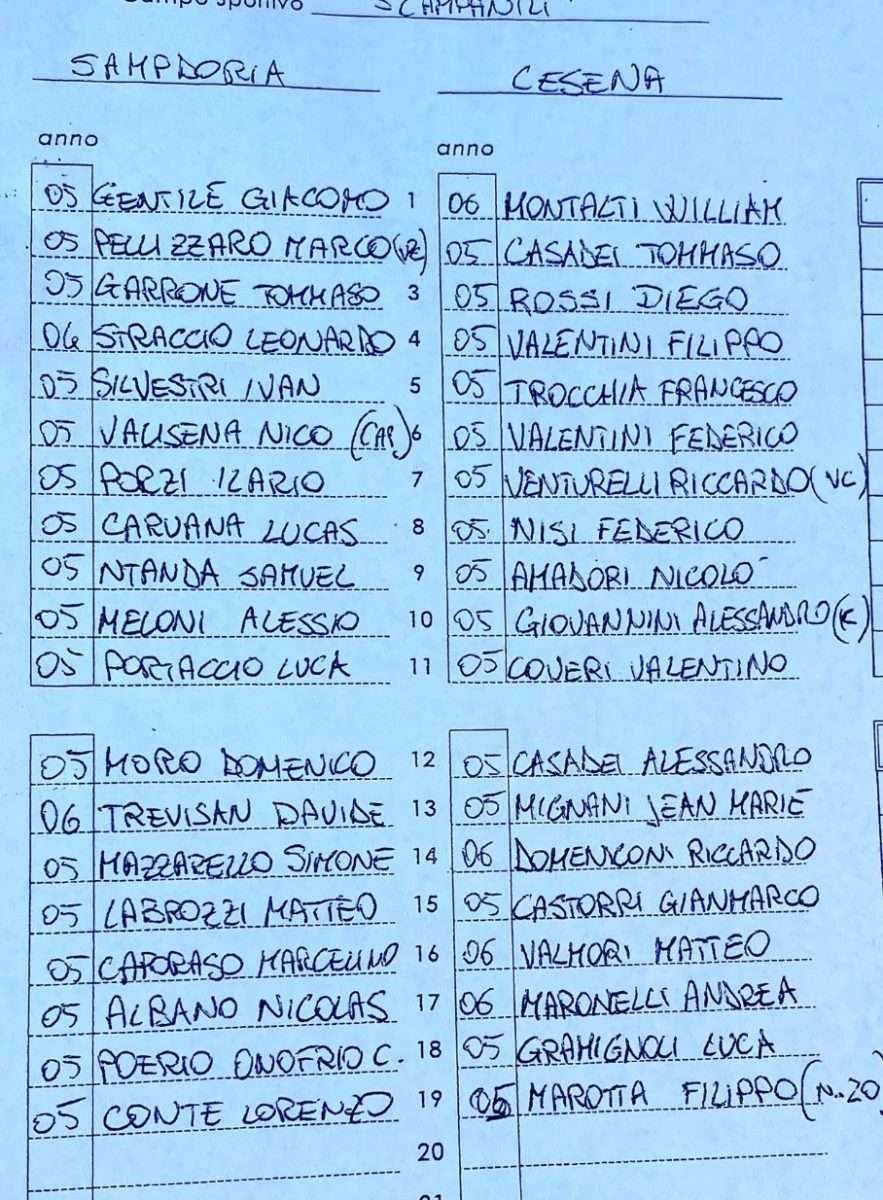 Campo sportivo SCAMPANILI
SAMPDORIA CESENA
anno anno
05 GENTILE GIACOMO 1 06 MONTALTI WILLIAM
05 PELLIZZARO MARCO (VK) 05 CASADEI TOMMASO
05 GARRONE TOMMASO 3 05 ROSSI DIEGO
06 STRACCIO LEONARDO 4 05 VALENTINI FILIPPO
05 SILVESTRI IVAN 5 05 TROCCHIA FRANCESCO
05 VALISENA NICO (CAP) 6 05 VALENTINI FEDERICO
05 PORZI ILARIO 7 05 VENTURELLI RICCARDO (VC)
05 CARUANA LUCAS 8 05 NISI FEDERICO
05 NTANDA SAMUEL 9 05 AMADORI NICOLO'
05 MELONI ALESSIO 10 05 GIOVANNINI ALESSANDRO (K)
05 PORTACCIO LUCA 11 05 COVERI VALENTINO
05 MORO DOMENICO 12 05 CASADEI ALESSANDRO
06 TREVISAN DAVIDE 13 05 MIGNANI JEAN MARIE
05 MAZZARELLO SIMONE 14 06 DOMENICONI RICCARDO
05 LABROZZI MATTEO 15 05 CASTORRI GIANMARCO
05 CAPORASO MARCELLINO 16 06 VALMORI MATTEO
05 ALBANO NICOLAS 17 06 MARONELLI ANDREA
05 POERIO ONOFRIO C. 18 05 GRAMIGNOLI LUCA
05 CONTE LORENZO 19 MAROTTA FILIPPO (N. 20)
20
21